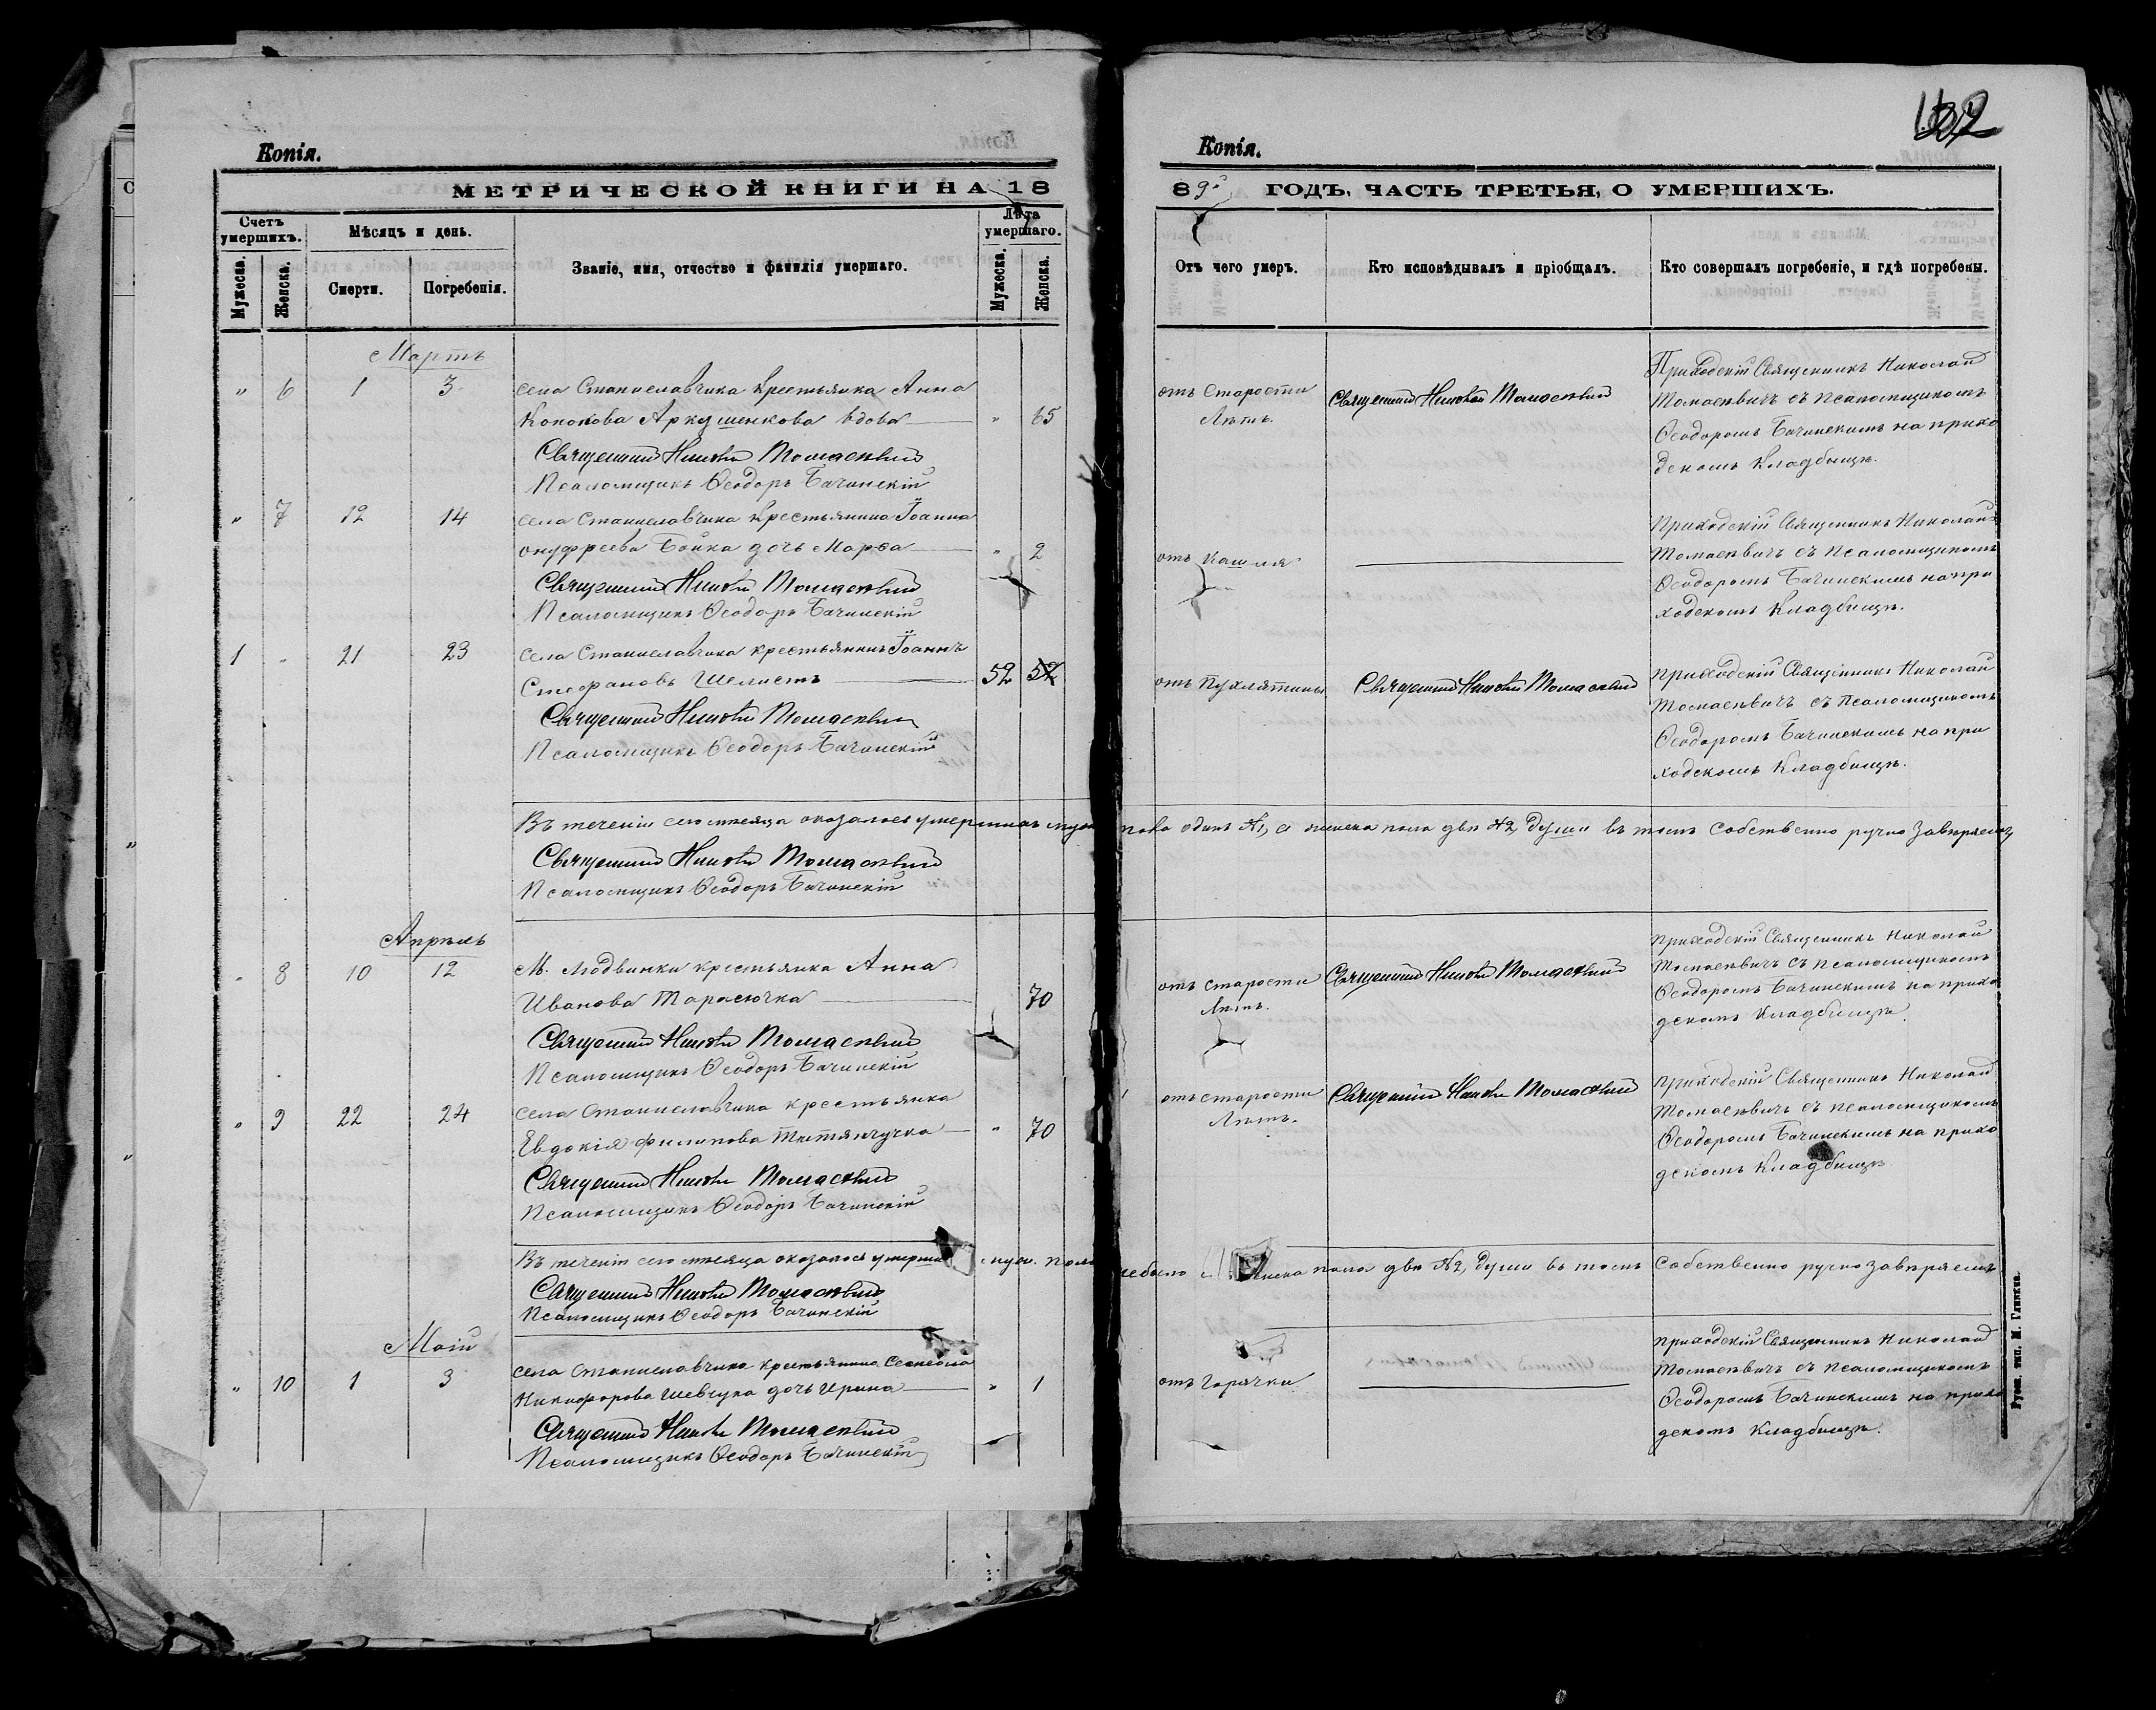 Копія.
МЕТРИЧЕСКОЙ КНИГИ НА 18
Счетъ умершихъ.
Мѣсяцъ и день.
Званіе, имя, отчество и фамилія умершаго.
Лѣта умершаго.
Мужеска.
Женска.
Смерти.
Погребенія.
Мужеска.
Женска.
Мартъ
" 6 1 3 села Станиславчика крестьянка Анна
Кононова Аркушенкова вдова " 65
Священникъ Николай Томасевичъ
Псаломщикъ Ѳеодоръ Бачинскій
" 7 12 14 села Станиславчика крестьянина Іоанна
Онуфреева Бойка дочь Марѳа " 2
Священникъ Николай Томасевичъ
Псаломщикъ Ѳеодоръ Бачинскій
1 " 21 23 села Станиславчика крестьянинъ Іоаннъ
Стефановъ Шелистъ 52 52
Священникъ Николай Томасевичъ
Псаломщикъ Ѳеодоръ Бачинскій
Въ теченіи сего мѣсяца оказалось умершихъ муж
Священникъ Николай Томасевичъ
Псаломщикъ Ѳеодоръ Бачинскій
Апрѣль
" 8 10 12 М. Людвинки крестьянка Анна
Иванова Тарасючка 70
Священникъ Николай Томасевичъ
Псаломщикъ Ѳеодоръ Бачинскій
" 9 22 24 села Станиславчика крестьянка
Евдокія Филипова 70
Священникъ Николай Томасевичъ
Псаломщикъ Ѳеодоръ Бачинскій
Въ теченіи сего мѣсяца оказалося умерши муж. пола
Священникъ Николай Томасевичъ
Псаломщикъ Ѳеодоръ Бачинскій
Маій
" 10 1 3 села Станиславчика крестьянина
Никифорова Шевчука дочь Ирина " 1
Священникъ Николай Томасевичъ
Псаломщикъ Ѳеодоръ Бачинскій
Копія.
89й ГОДЪ, ЧАСТЬ ТРЕТЬЯ, О УМЕРШИХЪ.
Отъ чего умеръ.
Кто исповѣдывалъ и пріобщалъ.
Кто совершалъ погребеніе, и гдѣ погребены.
отъ старости
лѣтъ.
Священникъ Николай Томасевичъ
Приходскій Священникъ Николай
Томасевичъ съ Псаломщикомъ
Ѳеодоромъ Бачинскимъ на прихо
дскомъ Кладбищѣ.
отъ кашля
Приходскій Священникъ Николай
Томасевичъ съ Псаломщикомъ
Ѳеодоромъ Бачинскимъ на при
ходскомъ Кладбищѣ.
отъ пухлятины
Священникъ Николай Томасевичъ
Приходскій Священникъ Николай
Томасевичъ съ Псаломщикомъ
Ѳеодоромъ Бачинскимъ на при
ходскомъ Кладбищѣ.
пола одинъ №1, а женска пола двѣ №2, души въ томъ собственно ручно завѣряемъ
отъ старости
лѣтъ.
Священникъ Николай Томасевичъ
Приходскій Священникъ Николай
Томасевичъ съ Псаломщикомъ
Ѳеодоромъ Бачинскимъ на прихо
дскомъ Кладбищѣ.
отъ старости
лѣтъ.
Священникъ Николай Томасевичъ
Приходскій Священникъ Николай
Томасевичъ съ Псаломщикомъ
Ѳеодоромъ Бачинскимъ на прихо
дскомъ Кладбищѣ
небыло пола двѣ №2, души въ томъ собственно ручно завѣряемъ
отъ горячки
Приходскій Священникъ Николай
Томасевичъ съ Псаломщикомъ
Ѳеодоромъ Бачинскимъ на прихо
дскомъ Кладбищѣ.
тип. М. Глинка.